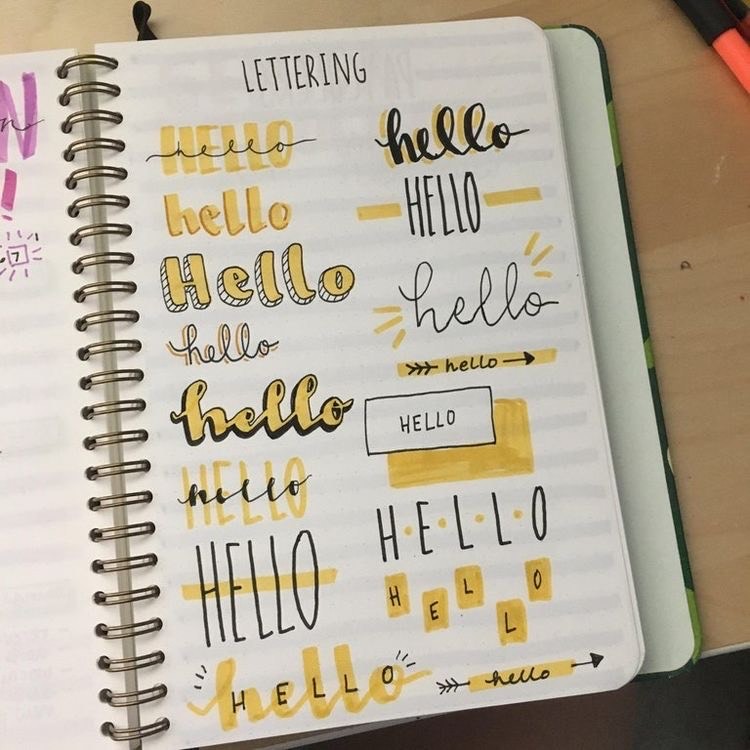 LETTERING
HELLO
hello
hello
Hello
hello
hello
HELLO
hello
HELLO
hello
HELLO
hello
HELLO
hello
hello
HELLO
H·E·L·L·O
H E L L O
hello
N
!
7